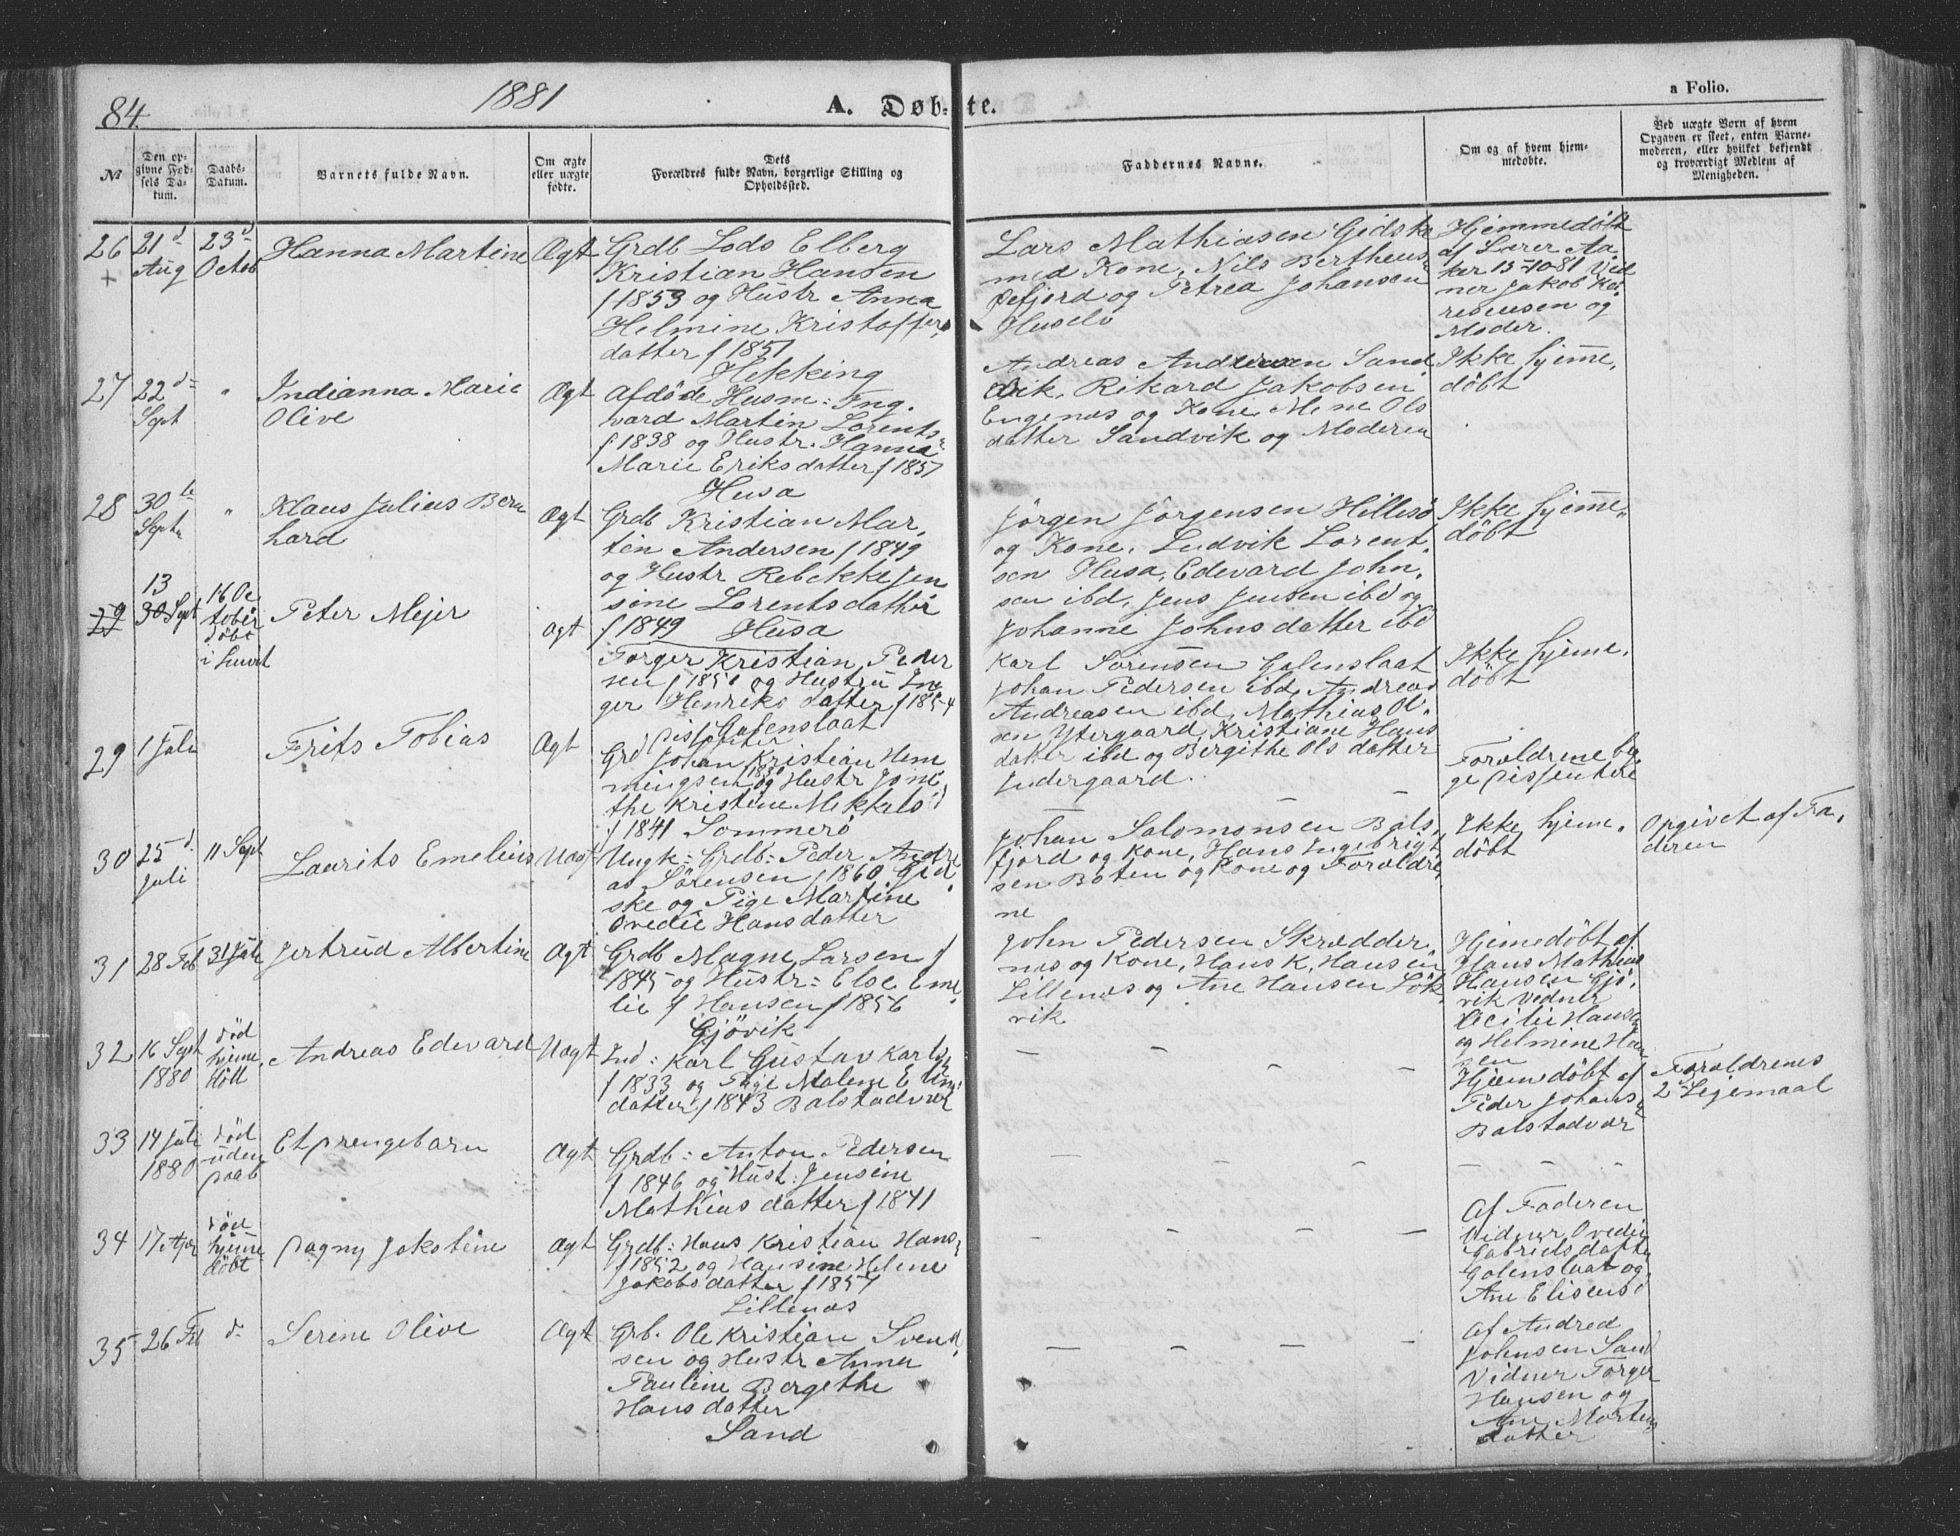 84.
1881
A. Døb-te.
a Folio.
№
Den op-
givne Fød-
sels Da-
tum.
Daabs-
Datum.
Barnets fulde Navn.
Om ægte
eller uægte
fødte.
Dets
Forældres fulde Navn, borgerlige Stilling og
Opholdssted.
Faddernes Navne.
Om og af hvem hjem-
medøbte.
Ved uægte Børn af hvem
Opgaven er skeet, enten Barne-
moderen, eller hvilket bekjendt
og troværdigt Medlem af
Menigheden.
26
+
21 d
Aug
23 d
Octob
Hanna Martine
Ægt
Grdb Lods Elberg
Kristian Hansen
f 1853 og Hustr Anna
Helmine Kristoffer,
datter f 1851
Hekking
Lars Mathiasen Gidske
med Kone, Nils Bertheus
og Petrea Johansen
Huselv
Hjemmedøbt
af Lærer Aa
ker 15-10-81 Vid
ner Jakob
og
Moder.
27
22 d
Sept
"
Indianna Marie
Olive
Ægt
Afdøde Husm: Ing.
vard Martin Lorents-
f 1838 og Hustr. Hanna
Marie Eriksdatter f 1857
Husa
Andreas Andersen Sand
vik, Rikard Jakobsen
Engenæs og Kone, Mene Ols
datter Sandvik og Moderen
Ikke hjemme,
døbt
28
30 te
Septr
"
Klaus Julius Bern
hard
Ægt
Grdb Kristian Mar,
tin Andersen f 1849
og Hustr Rebekka Jen
sine Lorentsdatter
f 1849 Husa
Jörgen Jörgensen Hillesö
og Kone, Ludvik Lorent,
sen Husa, Edevard John,
sen ibd, Jens Jensen ibd og
Johanne Johnsdatter ibd
Ikke hjemme,
døbt
29
13
30 Sept
16 Oc
tober
döbt
Peter Mejer
Ægt
Torger Kristian, Peder
sen f 1850 og Hustru In
ger Henriksdatter f 1854
Galenslaat
Karl Sörensen Galenslaat
Johan Pedersen ibd, Andreas
Andreasen ibd, Mathias Ol,
sen Ytergaard, Kristiane Hans
datter ibd og Bergithe Olsdatter
Indergaard.
Ikke hjeme,
døbt
29
1 Juli
Frits Tobias
Ægt
Dissenter
Grd Johan Kristian Hem
mingsen 1830 og Hustr
the Kristine Mikkels d
f 1841 Sommerö
Forældrene beg
ge Dissentere
30
25 d
Juli
11 Sept
Laurits Emelius
Uægt
Ungk: Grdb: Peder Andre
as Sörensen f 1860 Gid,
ske og Pige Martine
Ovedie Hansdatter
Johan Salomonsen Bals,
fjord og Kone, Hans Ingebrigt
sen Boten og Kone og Forældre,
ne
Ikke hjeme,
døbt
Opgivet af Fa,
deren
31
28 Feb
31 Juli
Jertrud Albertine
Ægt
Grdb Magne Larsen f
1845 og Hustr: Else Eme,
lie f Hansen f 1856
Gjövik
John Pedersen Skrædder,
næs og Kone, Hans K. Hansen
Lillenæs og Ane Hansen Lök
vik
Hjemedøbt af
Hans Mathias
Hansen Gjö,
vik Vidner
Cecilie Hansen
og Helmine Han
sen
32
16 Sept
1880
död
hjeme
Andreas Edevard
Uægt
Ind: Karl Gustav Karls
f 1833 og Pige Malene E
datter f 1843 Balstadvær
Hjemdøbt af
Peder Johans,
Balstadvær
Forældrenes
2 Lejemaal
33
14 Juli
1880
död
uden
daab
Et Drengebarn
Ægt
Grdb: Anton Pedersen
f 1846 og Hust: Jensine
Mathiasdatter f 1841
34
17
död
hjeme
döbt
Dagny Jakobine
Ægt
Grdb: Hans Kristian Hans,
f 1852 og Hansine Helene
Jakobsdatter f 1857
Lillenæs
Af Faderen
Vidner Ovedie
Gabrielsdatter
Galenslaat og
Ane Elisens
35
26 Feb
d
Serene Olive
Ægt
Grb. Ole Kristian Svend,
sen og Hustr Anna
Pauline Bergethe
Hansdatter
Sand
Af Andrea
Johnsen Sand
Vidner Torger
Hansen og
Ane Mortens
datter